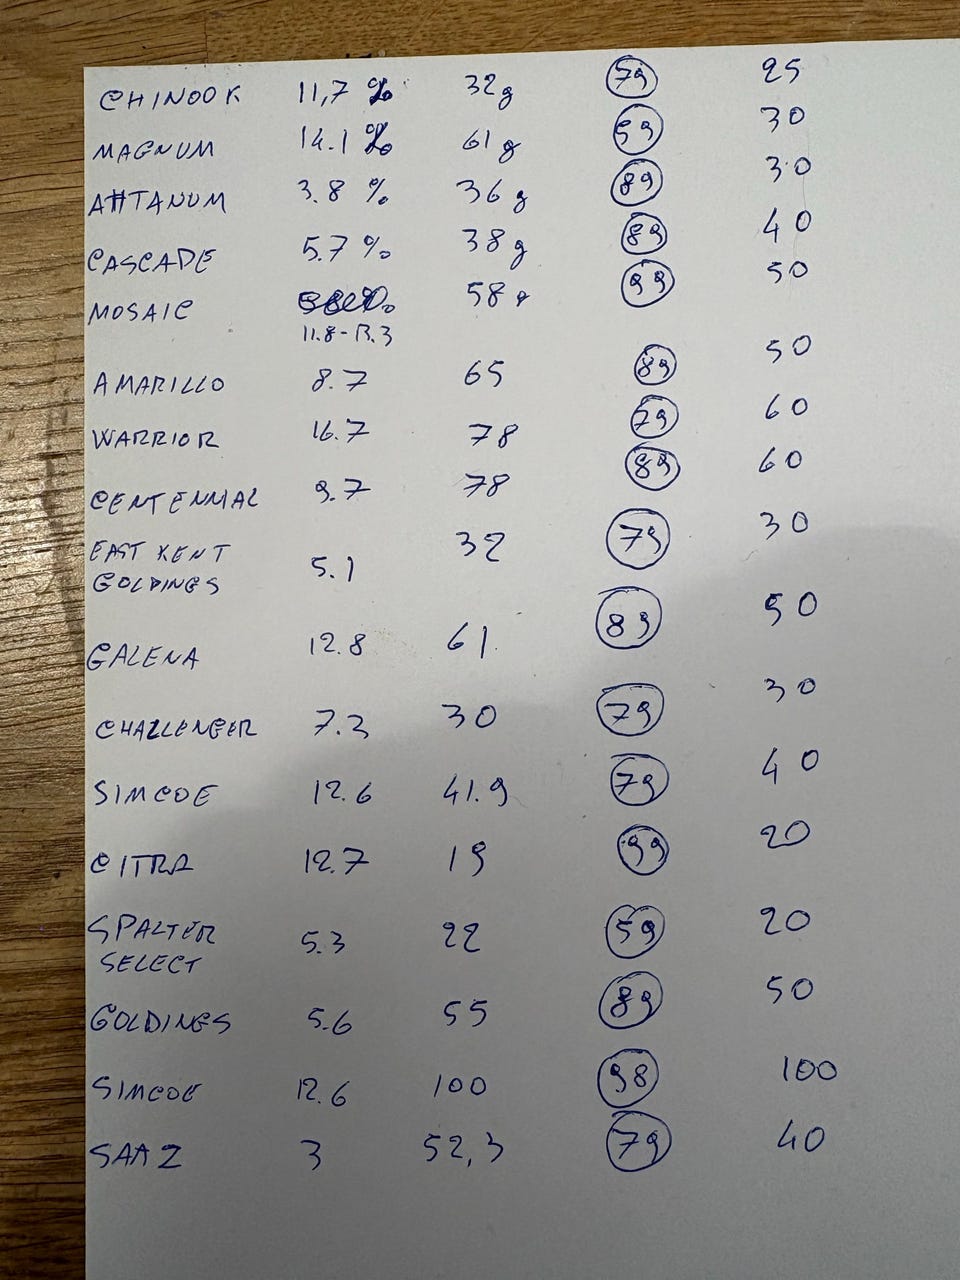 CHINOOK 11,7 % 32g 79 25
MAGNUM 14.1 % 61g 59 30
AHTANUM 3.8 % 36g 89 30
CASCADE 5.7 % 38g 89 40
MOSAIC 58g 99 50
11.8-13.3
AMARILLO 8.7 65 89 50
WARRIOR 16.7 78 79 60
CENTENNIAL 9.7 78 89 60
EAST KENT 32 79 30
GOLDINGS 5.1
GALENA 12.8 61 89 50
CHALLENGER 7.2 30 79 30
SIMCOE 12.6 41.9 79 40
CITRA 12.7 19 99 20
SPALTER 5.3 22 59 20
SELECT
GOLDINGS 5.6 55 89 50
SIMCOE 12.6 100 98 100
SAAZ 3 52,3 79 40